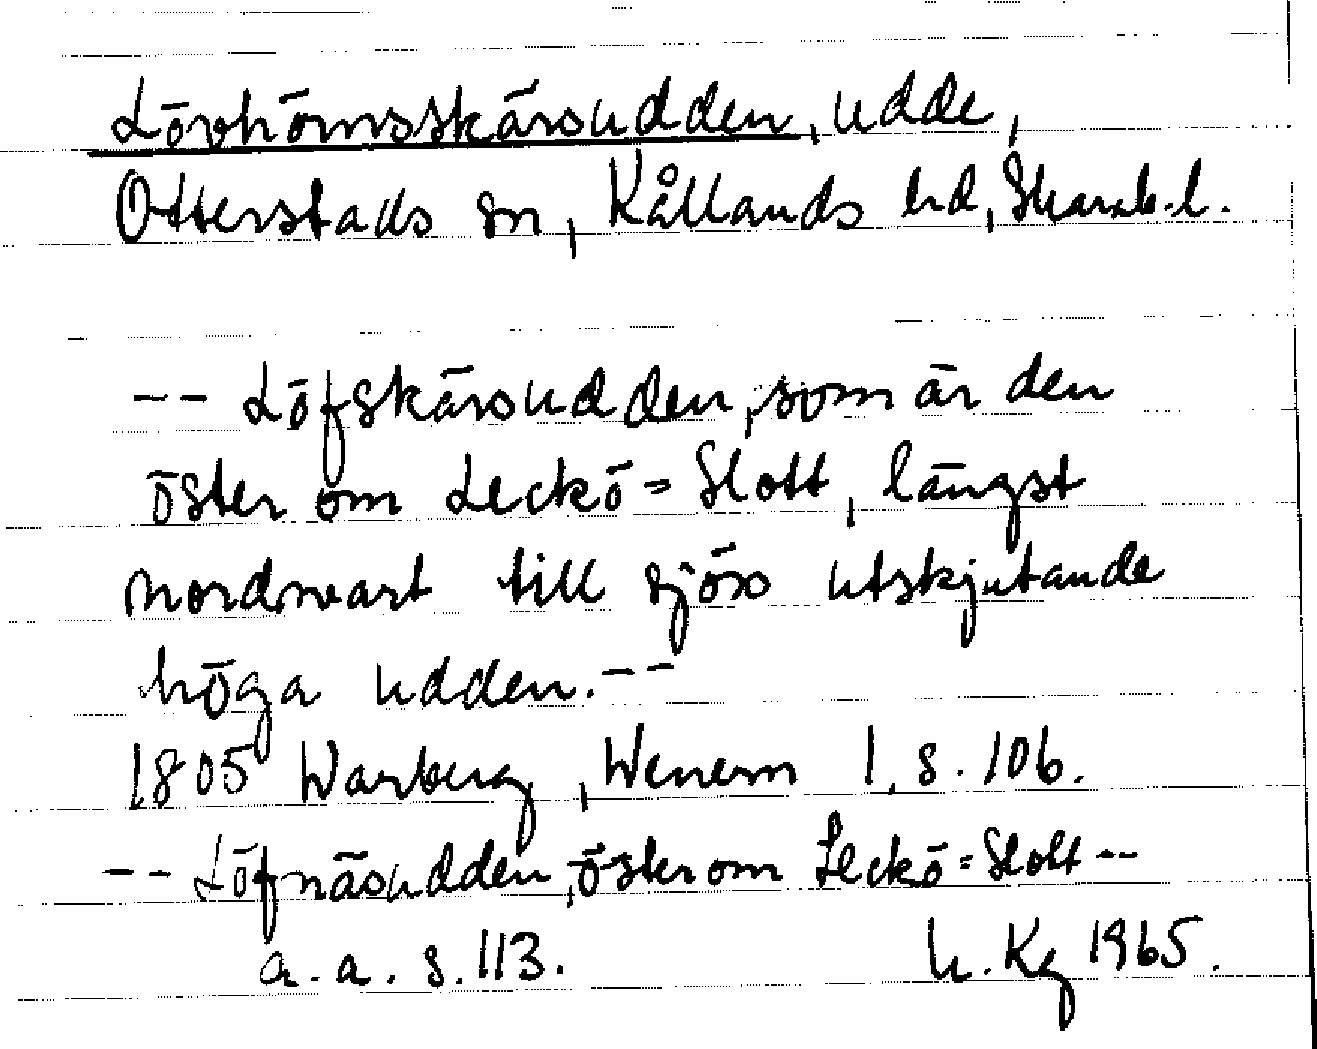 Lövhörnsskärsudden, udde,
Otterstads sn, Kållands hd, Skarab.l.
-- Löfskärsudden, som är den
öster om Leckö=Slott, längst
nordwart till sjös utskjutande
höga udden. --
1805 Warberg, Wenern 1, s. 106.
-- Löfnäsudden, öster om Leckö=Slott --
a. a. s. 113. U. Kg 1965.